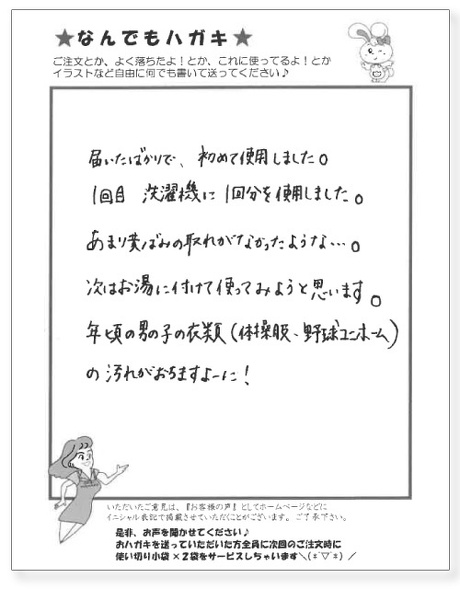 ★なんでもハガキ★
ご注文とか、よく落ちたよ！とか、これに使ってるよ！とか
イラストなど自由に何でも書いて送ってください♪
届いたばかりで、初めて使用しました。
1回目 洗濯機に1回分を使用しました。
あまり黄ばみの取れがなかったような…。
次はお湯に付けて使ってみようと思います。
年頃の男の子の衣類（体操服、野球ユニホーム）
の汚れがおちますよーに！
いただいたご意見は、『お客様の声』としてホームページなどに
イニシャル表記で掲載させていただくことがございます。ご了承下さい。
是非、お声を聞かせてください♪
おハガキを送っていただいた方全員に次回のご注文時に
使い切り小袋×2袋をサービスしちゃいます＼(±▽±)／